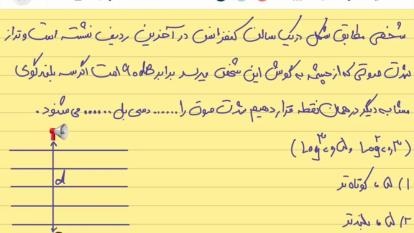 شخصی مطابق شکل در یک سالن کنفرانس در آخرین ردیف نشسته است و تراز
شدت صوتی که از چشمه به گوش این شخص میرسد برابر 90db است اگر سه بلندگوی
مشابه دیگر در همان نقطه قرار دهیم شدت صوت را ...... دسی بل ...... می شنود.
(Log 2 = 0,3 و Log 3 = 0,5)
1) 5 ، کوتاه تر
2) 5 ، بلندتر
d